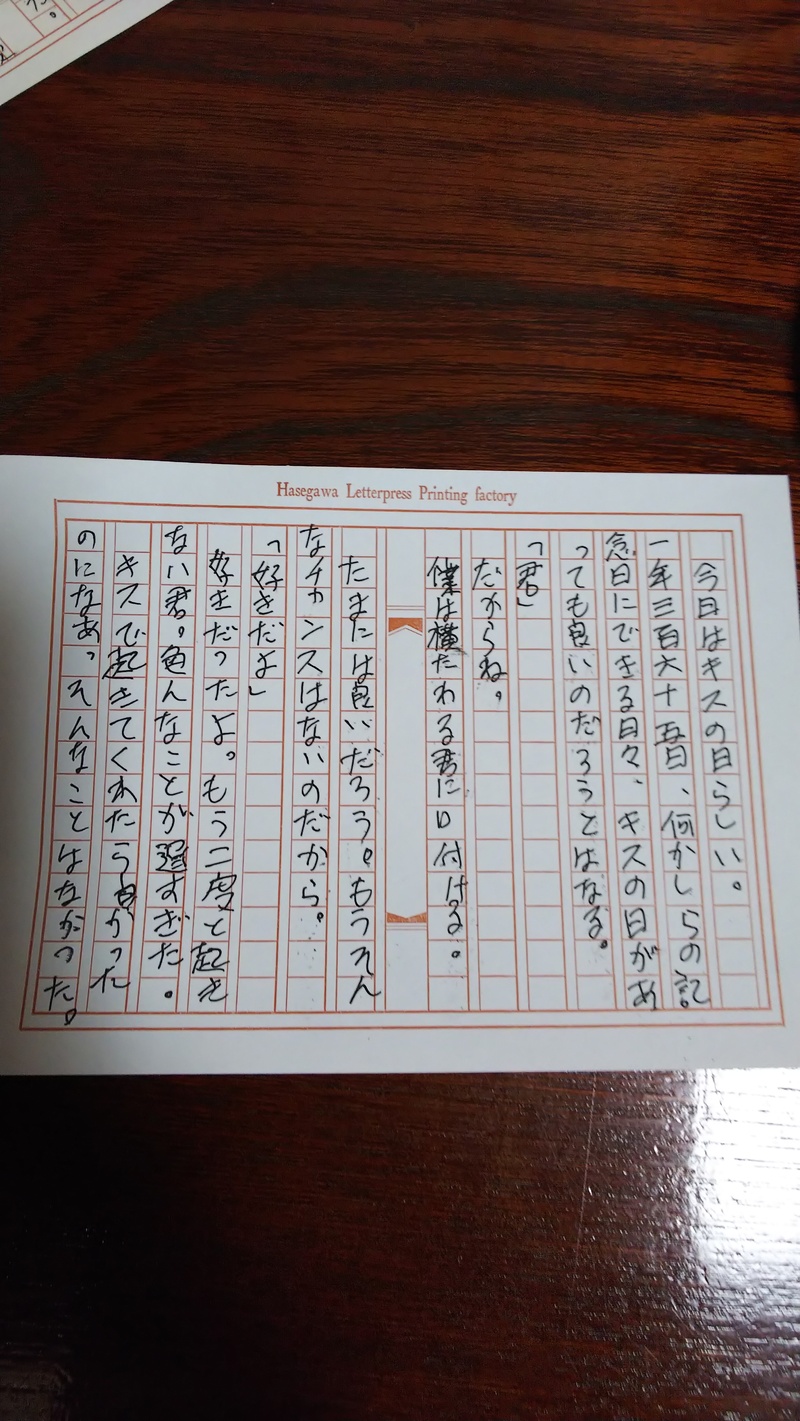 Hasegawa Letterpress Printing factory
今日はキスの日らしい。
一年三百六十五日、何かしらの記
念日にできる日々、キスの日があ
っても良いのだろうとはなる。
「君」
だからね。
僕は横たわる君に口付ける。
たまには良いだろう。もうそん
なチャンスはないのだから。
「好きだよ」
好きだったよ。もう二度と起き
ない君。色んなことが遅すぎた。
キスで起きてくれたら良かった
のになあ。そんなことはなかった。